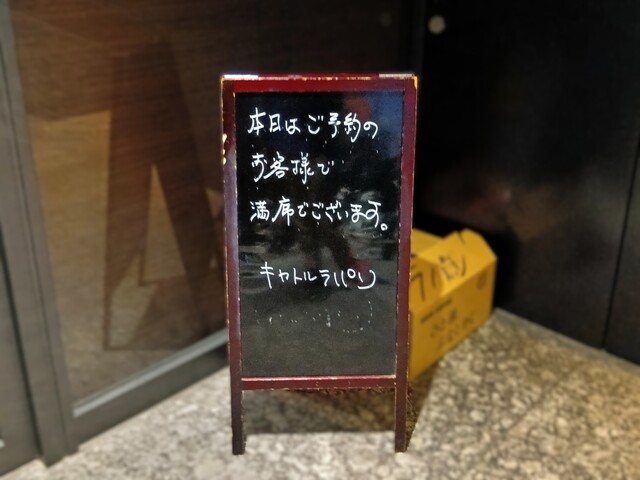 本日はご予約の
お客様で
満席でございます。
キャトルラパン